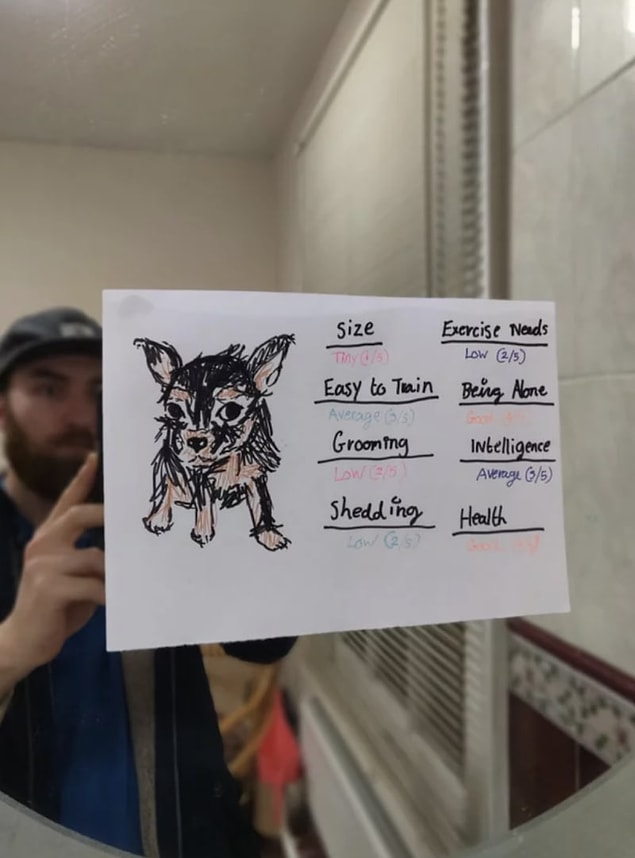 Size
Tiny (1/5)
Easy to Train
Average (3/5)
Grooming
Low (2/5)
Shedding
Low (2/5)
Exercise Needs
Low (2/5)
Being Alone
Good
Intelligence
Average (3/5)
Health
Good